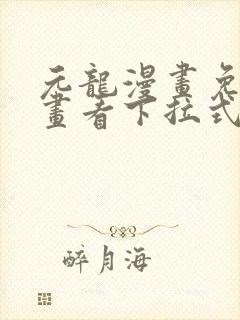 元龍漫畫免
畫者下拉式
醉月海